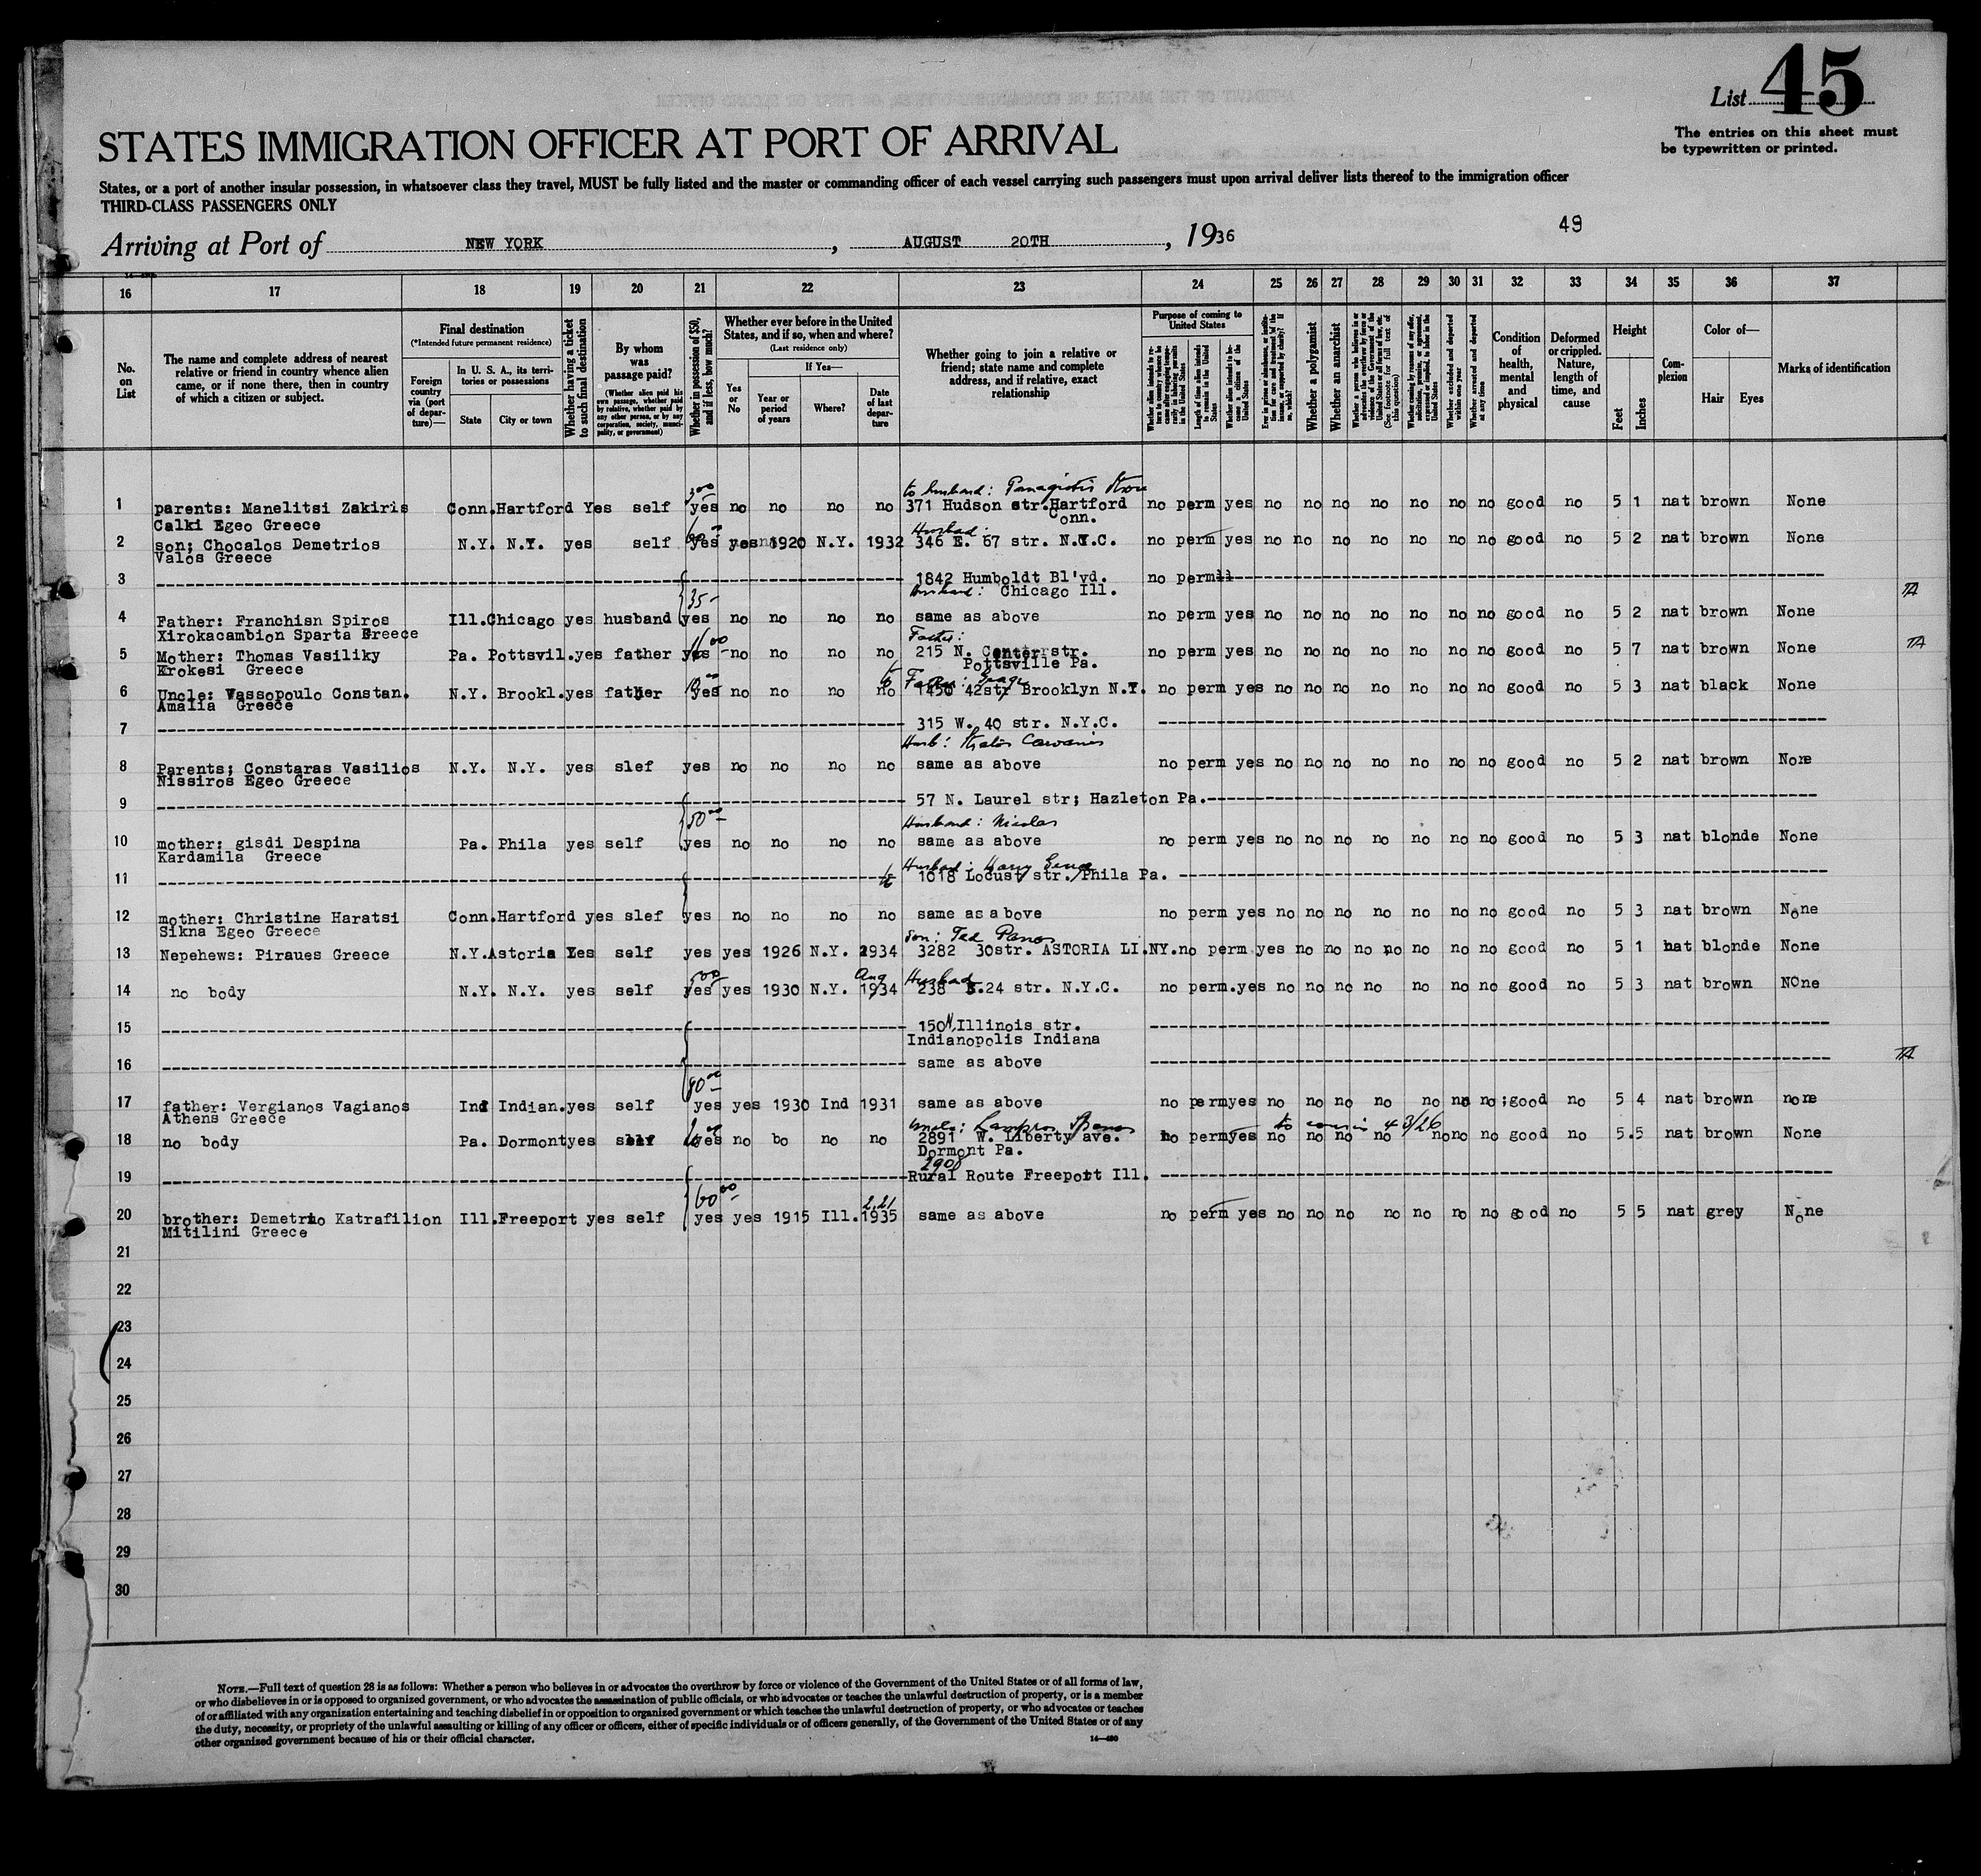 List 45
The entries on this sheet must
be typewritten or printed.
STATES IMMIGRATION OFFICER AT PORT OF ARRIVAL
States, or a port of another insular possession, in whatsoever class they travel, MUST be fully listed and the master or commanding officer of each vessel carrying such passengers must upon arrival deliver lists thereof to the immigration officer
THIRD-CLASS PASSENGERS ONLY
49
Arriving at Port of NEW YORK, AUGUST 20TH, 1936
16 17 18 19 20 21 22 23 24 25 26 27 28 29 30 31 32 33 34 35 36 37
No. on List
The name and complete address of nearest relative or friend in country whence alien came, or if none there, then in country of which a citizen or subject.
Final destination
(*Intended future permanent residence)
Foreign country via (port of departure)—
In U. S. A., its territories or possessions
State
City or town
Whether having a ticket to such final destination
By whom was passage paid?
(Whether alien paid his own passage, whether paid by relative, whether paid by any other person, or by any corporation, society, municipality, or government)
Whether in possession of $50, and if less, how much?
Whether ever before in the United States, and if so, when and where?
(Last residence only)
Yes or No
If Yes—
Year or period of years
Where?
Date of last departure
Whether going to join a relative or friend; state name and complete address, and if relative, exact relationship
Purpose of coming to United States
Length of time alien intends to remain in the United States
Whether alien intends to become a citizen of the United States
Whether a polygamist
Whether an anarchist
Whether excluded and deported within one year
Whether arrested and deported at any time
Condition of health, mental and physical
Deformed or crippled. Nature, length of time, and cause
Height
Feet
Inches
Complexion
Color of—
Hair
Eyes
Marks of identification
to husband: Panagiotis
1 parents: Manelitsi Zakiris Conn. Hartford Yes self yes no no no no 371 Hudson str. Hartford no perm yes no no no no no no no good no 5 1 nat brown None
Calki Egeo Greece Conn.
Husbad:
2 son; Chocalos Demetrios N.Y. N.Y. yes self yes yes 1920 N.Y. 1932 346 E. 67 str. N.Y.C. no perm yes no no no no no no no good no 5 2 nat brown None
Valos Greece
3 1842 Humboldt Bl'vd. no perm
Husband: Chicago Ill.
35-
4 Father: Franchisn Spiros Ill. Chicago yes husband yes no no no no same as above no perm yes no no no no no no no good no 5 2 nat brown None
Xirokacambion Sparta Greece
Father:
5 Mother: Thomas Vasiliky Pa. Pottsvil. yes father yes no no no no 215 N. Center str. no perm yes no no no no no no no good no 5 7 nat brown None
Krokesi Greece Pottsville Pa.
6 Uncle: Vassopoulo Constan. N.Y. Brookl. yes father yes no no no no 1450 42str Brooklyn N.Y. no perm yes no no no no no no no good no 5 3 nat black None
Amalia Greece
7 315 W. 40 str. N.Y.C.
8 Parents; Constaras Vasilios N.Y. N.Y. yes slef yes no no no no same as above no perm yes no no no no no no no good no 5 2 nat brown None
Nissiros Egeo Greece
9 57 N. Laurel str; Hazleton Pa.
50
Husband: Nicolas
10 mother: gisdi Despina Pa. Phila yes self yes no no no no same as above no perm yes no no no no no no no good no 5 3 nat blonde None
Kardamila Greece
Husbad: Harry
11 1618 Locust str. Phila Pa.
12 mother: Christine Haratsi Conn. Hartford yes slef yes no no no no same as a bove no perm yes no no no no no no no good no 5 3 nat brown None
Sikna Egeo Greece
Son: Ted Panos
13 Nepehews: Piraues Greece N.Y. Astoria Yes self yes yes 1926 N.Y. 1934 3282 30str. ASTORIA LI.NY. no perm yes no no no no no no no good no 5 1 nat blonde None
Aug Husbad
14 no body N.Y. N.Y. yes self yes yes 1930 N.Y. 1934 238 E.24 str. N.Y.C. no perm. yes no no no no no no no good no 5 3 nat brown NOne
15 150 N. Illinois str.
Indianopolis Indiana
16 same as above
17 father: Vergianos Vagianos Ind Indian. yes self yes yes 1930 Ind 1931 same as above no perm yes no no no no no no no good no 5 4 nat brown none
Athens Greece
Uncle: Lampros
18 no body Pa. Dormont yes self yes no bo no no 2891 W. Liberty ave. no perm yes no no no no no no no good no 5.5 nat brown None
Dormont Pa.
19 Rural Route Freeport Ill.
60 2.21
20 brother: Demetrio Katrafilion Ill. Freeport yes self yes yes 1915 Ill. 1935 same as above no perm yes no no no no no no no good no 5 5 nat grey None
Mitilini Greece
21
22
23
24
25
26
27
28
29
30
NOTE.—Full text of question 28 is as follows: Whether a person who believes in or advocates the overthrow by force or violence of the Government of the United States or of all forms of law,
or who disbelieves in or is opposed to organized government, or who advocates the assassination of public officials, or who advocates or teaches the unlawful destruction of property, or is a member
of or affiliated with any organization entertaining and teaching disbelief in or opposition to organized government or which teaches the unlawful destruction of property, or who advocates or teaches
the duty, necessity, or propriety of the unlawful assaulting or killing of any officer or officers, either of specific individuals or of officers generally, of the Government of the United States or of any
other organized government because of his or their official character.
14—490